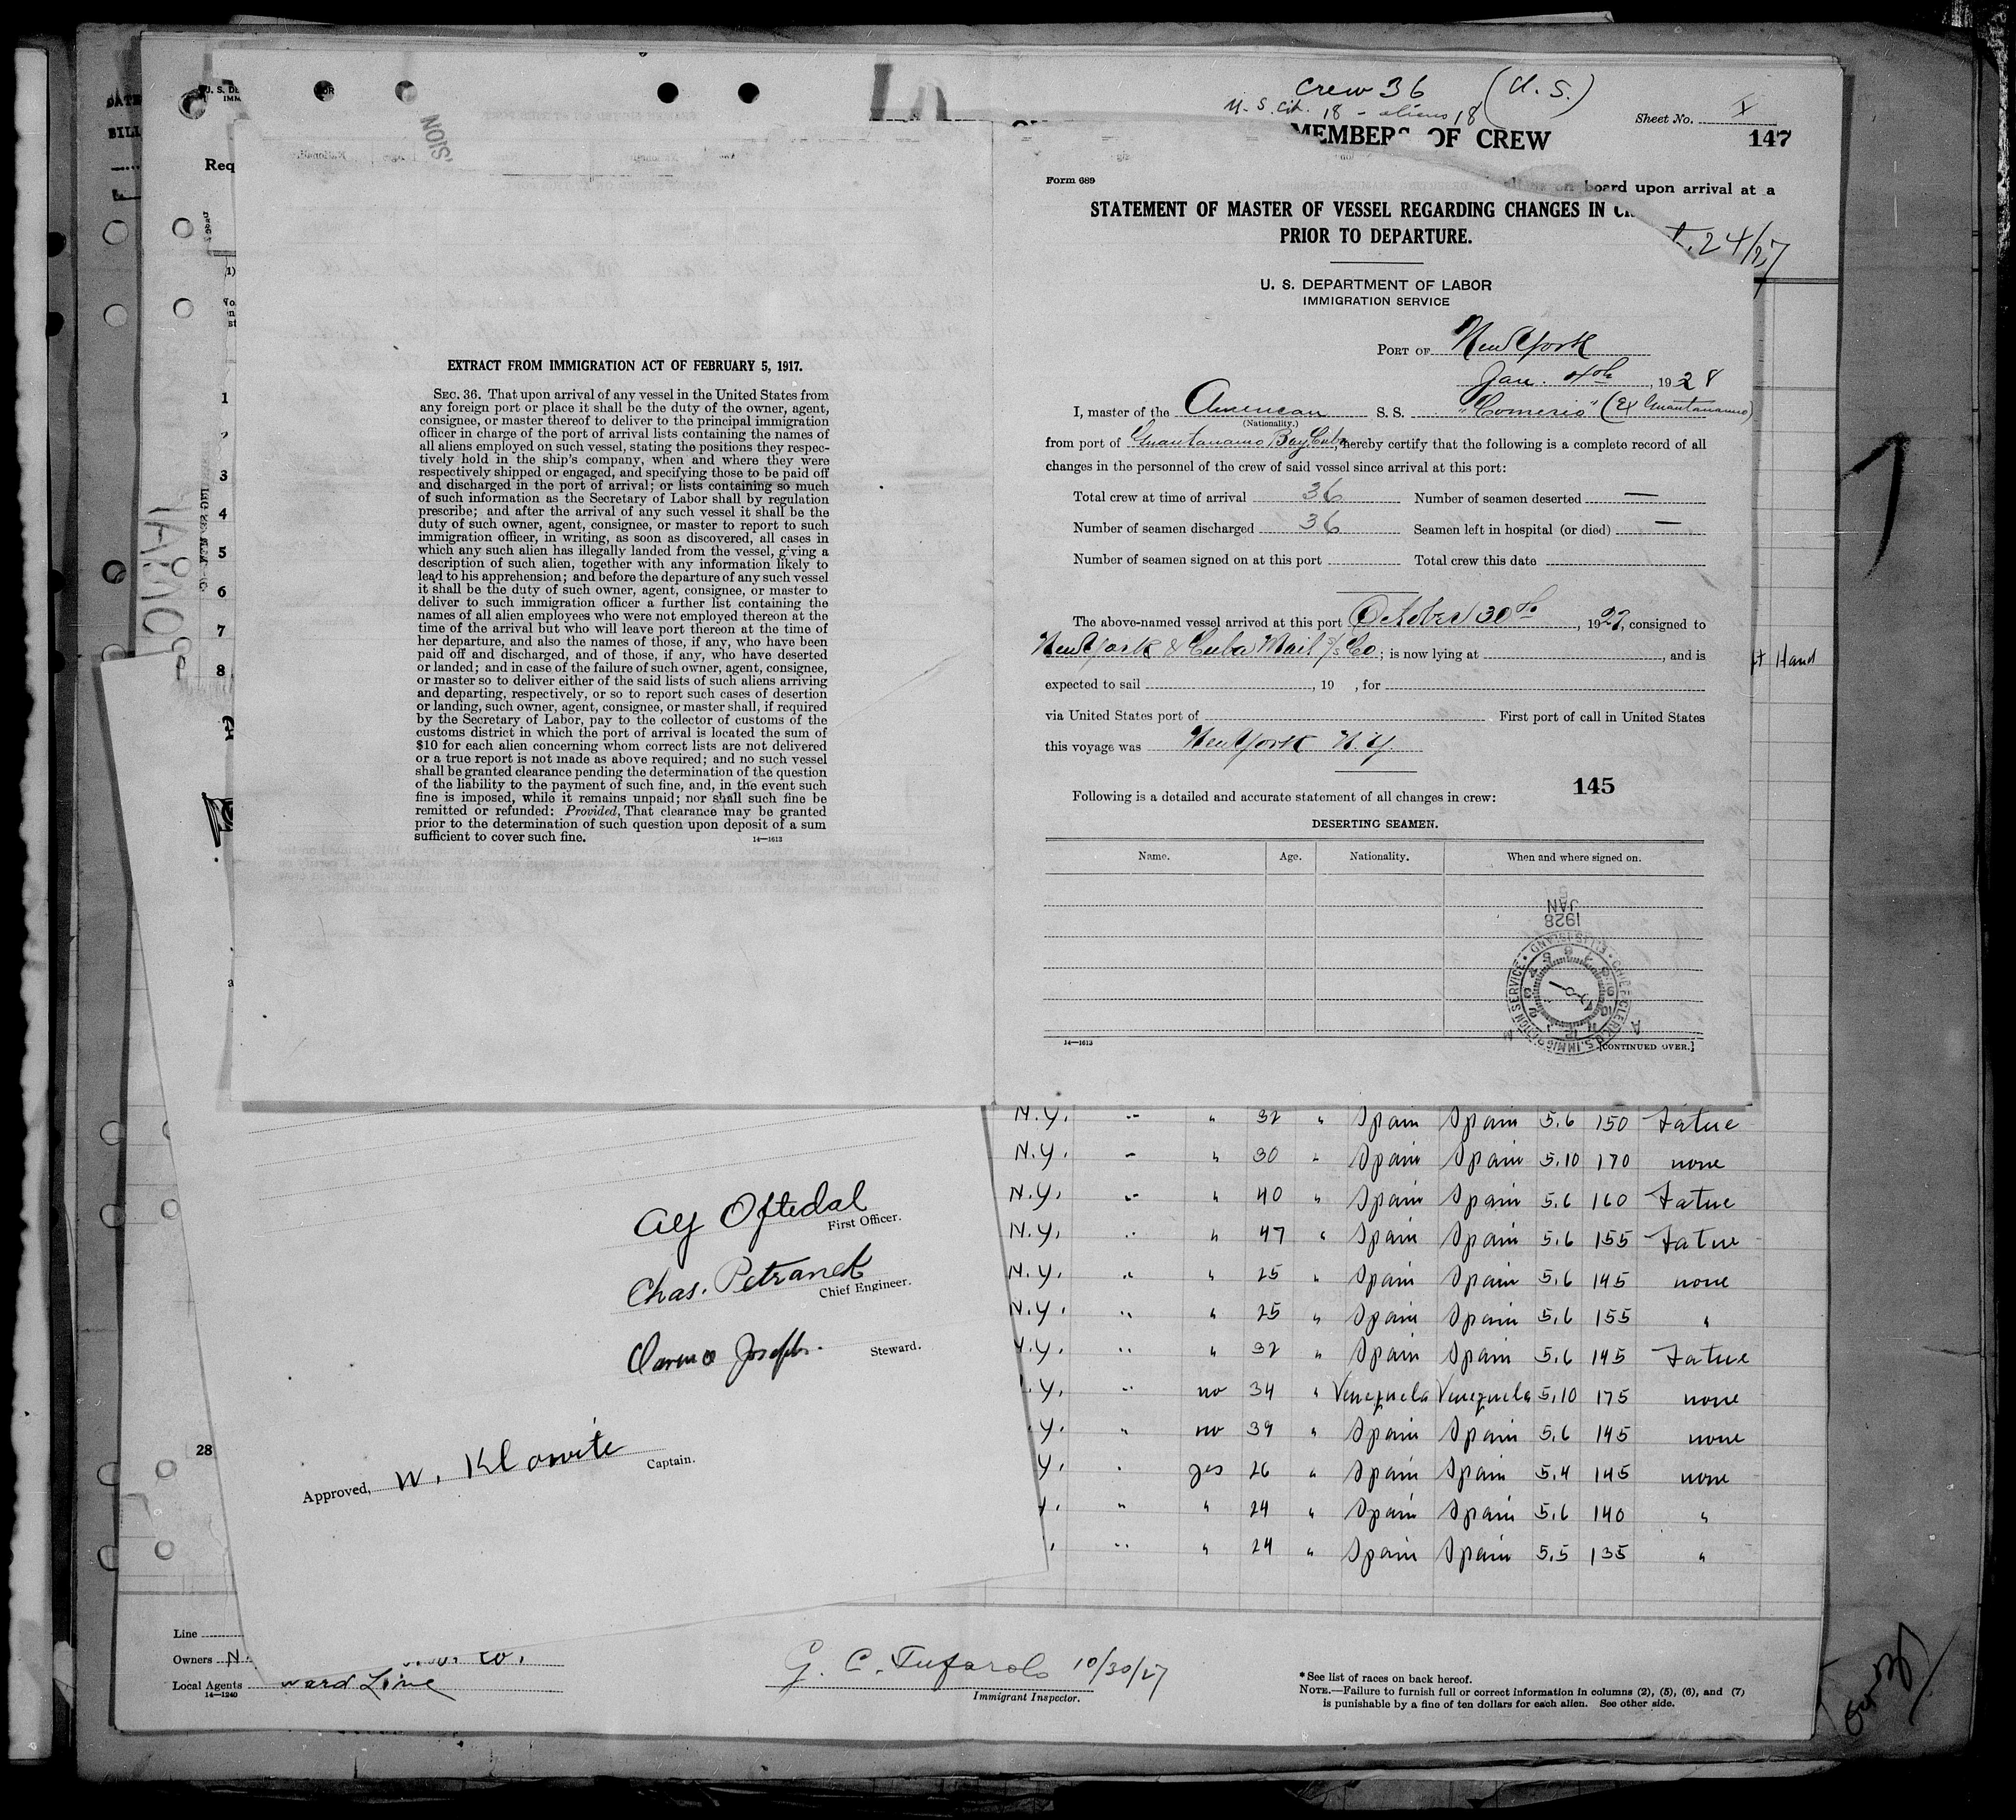 Crew 36 (U.S.)
U.S. Cit. 18 - aliens 18
Sheet No.
MEMBERS OF CREW
147
on board upon arrival at a
24/27
Form 689
STATEMENT OF MASTER OF VESSEL REGARDING CHANGES IN
PRIOR TO DEPARTURE.
U. S. DEPARTMENT OF LABOR
IMMIGRATION SERVICE
PORT OF New York
Jan. 4th, 1928
I, master of the American S. S. "Comerio" (Ex Guantanamo)
(Nationality.)
from port of Guantanamo Bay Cuba, hereby certify that the following is a complete record of all
changes in the personnel of the crew of said vessel since arrival at this port:
Total crew at time of arrival 36 Number of seamen deserted —
Number of seamen discharged 36 Seamen left in hospital (or died) —
Number of seamen signed on at this port Total crew this date
The above-named vessel arrived at this port October 30th, 1927, consigned to
New York & Cuba Mail S/S Co; is now lying at , and is
expected to sail , 19 , for
via United States port of First port of call in United States
this voyage was New York N.Y.
145
Following is a detailed and accurate statement of all changes in crew:
DESERTING SEAMEN.
Name. Age. Nationality. When and where signed on.
JAN
1928
14—1613
[CONTINUED OVER.]
EXTRACT FROM IMMIGRATION ACT OF FEBRUARY 5, 1917.
SEC. 36. That upon arrival of any vessel in the United States from
any foreign port or place it shall be the duty of the owner, agent,
consignee, or master thereof to deliver to the principal immigration
officer in charge of the port of arrival lists containing the names of
all aliens employed on such vessel, stating the positions they respec-
tively hold in the ship's company, when and where they were
respectively shipped or engaged, and specifying those to be paid off
and discharged in the port of arrival; or lists containing so much
of such information as the Secretary of Labor shall by regulation
prescribe; and after the arrival of any such vessel it shall be the
duty of such owner, agent, consignee, or master to report to such
immigration officer, in writing, as soon as discovered, all cases in
which any such alien has illegally landed from the vessel, giving a
description of such alien, together with any information likely to
lead to his apprehension; and before the departure of any such vessel
it shall be the duty of such owner, agent, consignee, or master to
deliver to such immigration officer a further list containing the
names of all alien employees who were not employed thereon at the
time of the arrival but who will leave port thereon at the time of
her departure, and also the names of those, if any, who have been
paid off and discharged, and of those, if any, who have deserted
or landed; and in case of the failure of such owner, agent, consignee,
or master so to deliver either of the said lists of such aliens arriving
and departing, respectively, or so to report such cases of desertion
or landing, such owner, agent, consignee, or master shall, if required
by the Secretary of Labor, pay to the collector of customs of the
customs district in which the port of arrival is located the sum of
$10 for each alien concerning whom correct lists are not delivered
or a true report is not made as above required; and no such vessel
shall be granted clearance pending the determination of the question
of the liability to the payment of such fine, and, in the event such
fine is imposed, while it remains unpaid; nor shall such fine be
remitted or refunded: Provided, That clearance may be granted
prior to the determination of such question upon deposit of a sum
sufficient to cover such fine.
14—1613
Req
1
3
4
5
6
7
8
28
Hand
N.Y. " " 32 " Spain Spain 5.6 150 Tatue
N.Y. " " 30 " Spain Spain 5.10 170 none
N.Y. " " 40 " Spain Spain 5.6 160 Tatue
N.Y. " " 47 " Spain Spain 5.6 155 Tatue
N.Y. " " 25 " Spain Spain 5.6 145 none
N.Y. " " 25 " Spain Spain 5.6 155 "
Y. " " 32 " Spain Spain 5.6 145 Tatue
Y. " no 34 " Venezuela Venezuela 5.10 175 none
Y. " no 39 " Spain Spain 5.6 145 none
Y. " yes 26 " Spain Spain 5.4 145 none
" " 24 " Spain Spain 5.6 140 "
" " 24 " Spain Spain 5.5 135 "
Alf Oftedal
First Officer.
Chas. Petranek
Chief Engineer.
Joseph.
Steward.
Approved, W. Captain.
Line
Owners N. Co.
Local Agents Ward Line
14—1240
G. C. Tufarolo 10/30/27
Immigrant Inspector.
*See list of races on back hereof.
NOTE.—Failure to furnish full or correct information in columns (2), (5), (6), and (7)
is punishable by a fine of ten dollars for each alien. See other side.